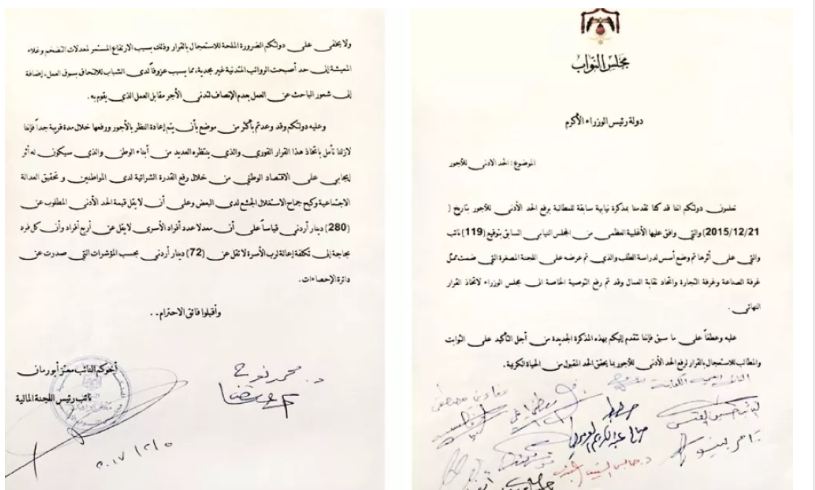 مجلس النواب
دولة رئيس الوزراء الأكرم
الموضوع: الحد الادنى للأجور
تعلمون دولتكم اننا قد كنا تقدمنا بمذكرة نيابية سابقة للمطالبة برفع الحد الأدنى للأجور بتاريخ (
2015/12/21) والتي وافق عليها الأغلبية العظمى من المجلس النيابي السابق بتوقيع (119) نائب
والتي على أثرها تم وضع أسس لدراسة الطلب والذي تم عرضه على اللجنة المصغرة التي ضمت ممثل
غرفة الصناعة وغرفة التجارة واتحاد نقابة العمال وقد تم رفع التوصية الخاصة الى مجلس الوزراء لاتخاذ القرار
النهائي .
عليه وعطفاً على ما سبق فإننا نتقدم إليكم بهذه المذكرة الجديدة من أجل التأكيد على الثوابت
والمطالب للاستعجال بالقرار لرفع الحد الأدنى للأجور بما يحقق الحد المقبول من الحياة الكريمة.
ولا يخفى على دولتكم الضرورة الملحة للاستعجال بالقرار وذلك بسبب الارتفاع المستمر لمعدلات التضخم وغلاء
المعيشة إلى حد أصبحت الرواتب المتدنية غير مجدية، مما يسبب عزوفاً لدى الشباب للالتحاق بسوق العمل، إضافة
إلى شعور الباحث عن العمل بعدم الإنصاف لتدني الأجر مقابل العمل الذي يقوم به.
وعليه دولتكم وقد وعدتم بأكثر من موضع بأن يتم إعادة النظر بالأجور ورفعها خلال مدة قريبة جداً فإننا
لازلنا نأمل باتخاذ هذا القرار الفوري والذي ينتظره العديد من أبناء الوطن والذي سيكون له أثر
إيجابي على الاقتصاد الوطني من خلال رفع القدرة الشرائية لدى المواطنين و تحقيق العدالة
الاجتماعية وكبح جماح الاستغلال الجشع لدى البعض وعلى أن لا يقل قيمة الحد الأدنى المطلوب عن
(280) دينار أردني قياساً على أن معدلا عدد أفراد الأسرى لا يقل عن أربع أفراد وأن كل فرد
بحاجة إلى تكلفة إعالة لرب الأسرة لا تقل عن (72) دينار أردني بحسب المؤشرات التي صدرت عن
دائرة الإحصاءات.
وأقبلوا فائق الاحترام..
أخوكم النائب معتز أبو رمان
نائب رئيس اللجنة المالية
د. محمد نوح
٢٠١٧/٢/٥